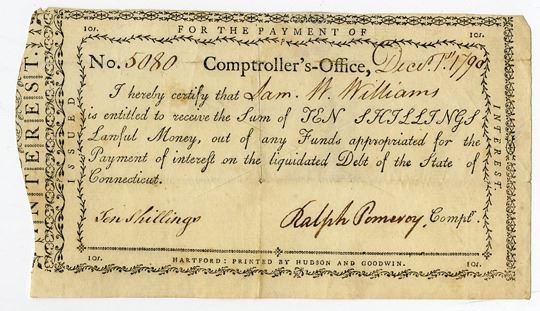 10s. FOR THE PAYMENT OF 10s.
No. 5080 Comptroller's-Office, Decr. 1st. 1790
I hereby certify that Sam. W. Williams
is entitled to receive the Sum of TEN SHILLINGS
Lawful Money, out of any Funds appropriated for the
Payment of interest on the liquidated Debt of the State of
Connecticut.
Ten Shillings Ralph Pomeroy, Compr.
10s. HARTFORD: PRINTED BY HUDSON AND GOODWIN. 10s.
ISSUED
INTEREST.
INTEREST.